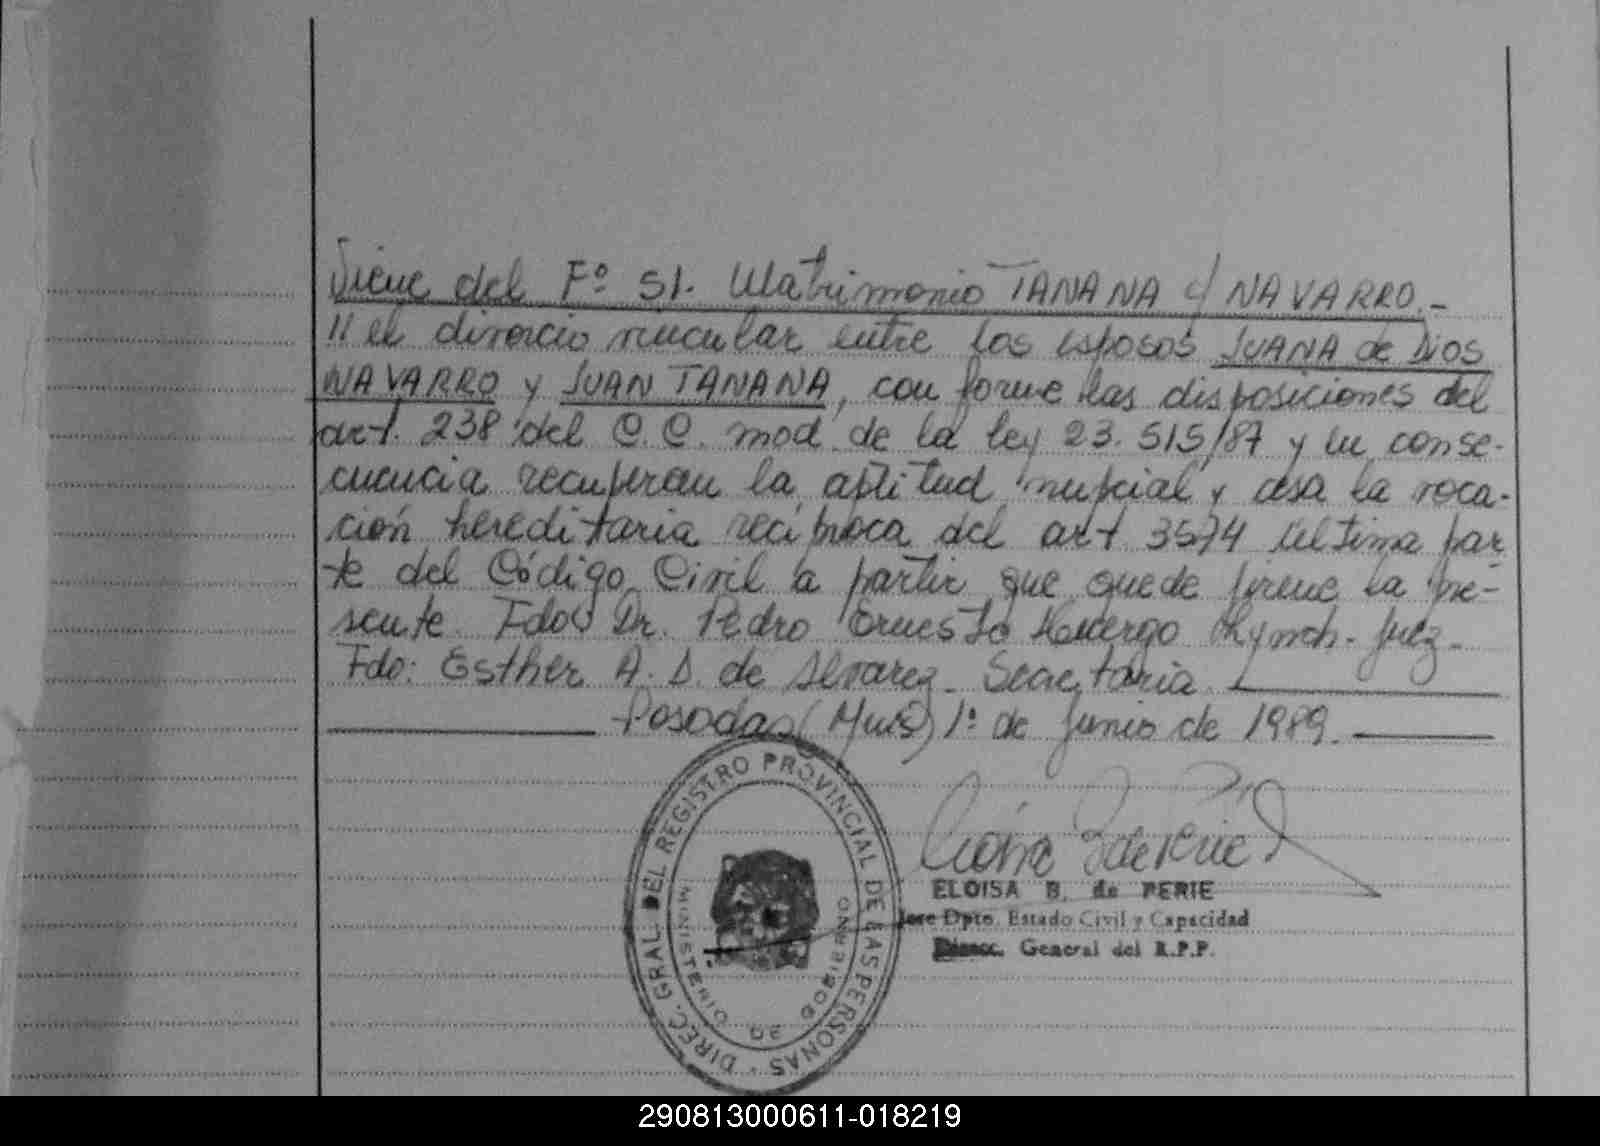 Viene del Fº 51. Matrimonio TANANA c/ NAVARRO.-
// el divorcio vincular entre los esposos JUANA de DIOS
NAVARRO y JUAN TANANA, con forme las disposiciones del
art. 238 del C.C. mod. de la ley 23.515/87 y en conse-
cuencia recuperan la aptitud nupcial y cesa la voca-
ción hereditaria recíproca del art 3574 última par
te del Código Civil a partir que quede firme la pre-
sente. Fdo Dr. Pedro Ernesto Lynch. Juez.-
Fdo: Esther A. D. de Alvarez. Secretaria.
Posadas (Mnes) 1º de Junio de 1989.
DIREC. GRAL. DEL REGISTRO PROVINCIAL DE LAS PERSONAS
MINISTERIO DE GOBIERNO
ELOISA B. de PERIE
Jefe Dpto. Estado Civil y Capacidad
Direcc. General del R.P.P.
290813000611-018219